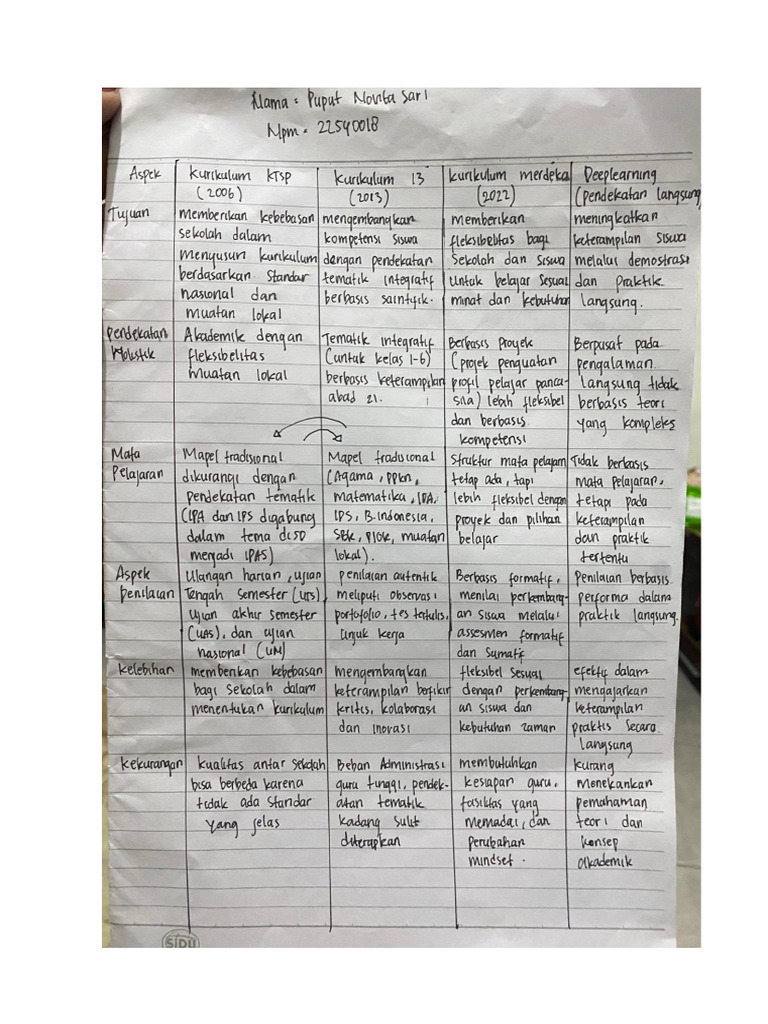 Nama = Puput Novita Sari
Npm = 22540018
Aspek
Kurikulum KTSP
(2006)
Kurikulum 13
(2013)
Kurikulum merdeka
(2022)
Deeplearning
(pendekatan langsung
Tujuan
memberikan kebebasan
sekolah dalam
menyusun kurikulum
berdasarkan standar
nasional dan
muatan lokal
mengembangkan
kompetensi siswa
dengan pendekatan
tematik integratif
berbasis saintifik.
memberikan
fleksibelitas bagi
Sekolah dan Siswa
Untuk belajar sesuai
minat dan kebutuhan
meningkatkan
keterampilan siswa
melalui demostrasi
dan praktik
langsung.
Pendekatan
Holistik
Akademik dengan
fleksibelitas
muatan lokal
Tematik integratif
(untuk kelas 1-6)
berbasis keterampilan
abad 21.
Berbasis Proyek
(projek penguatan
profil pelajar panca-
sila) lebih fleksibel
dan berbasis
kompetensi
Berpusat pada
pengalaman
langsung tidak
berbasis teori
yang kompleks
Mata
Pelajaran
Mapel tradisional
dikurangi dengan
pendekatan tematik
(IPA dan IPS digabung
dalam tema di SD
menjadi IPAS)
Mapel tradisional
(Agama, PPkn,
matematika, IPA,
IPS, B.Indonesia,
SBK, PJOK, muatan
lokal).
Struktur mata pelajaran
tetap ada, tapi
lebih fleksibel dengan
proyek dan pilihan
belajar
Tidak berbasis
mata pelajaran,
tetapi pada
keterampilan
dan praktik
tertentu
Aspek
penilaian
Ulangan harian, ujian
Tengah Semester (UTS)
ujian akhir semester
(UAS), dan ujian
nasional (UN)
penilaian autentik
meliputi observasi
portofolio, tes tertulis,
unjuk kerja
Berbasis formatif,
menilai perkembang-
an siswa melalui
assesmen formatif
dan Sumatif
penilaian berbasis
performa dalam
praktik langsung.
Kelebihan
memberikan kebebasan
bagi sekolah dalam
menentukan kurikulum
mengembangkan
keterampilan berfikir
kritis, kolaborasi
dan inovasi
fleksibel sesuai
dengan perkembang-
an siswa dan
kebutuhan zaman
efektif dalam
mengajarkan
keterampilan
praktis secara
langsung
Kekurangan
kualitas antar sekolah
bisa berbeda karena
tidak ada standar
yang jelas
Beban Administrasi
guru tinggi, pendek-
atan tematik
kadang sulit
diterapkan
membutuhkan
kesiapan guru,
fasilitas yang
memadai, dan
perubahan
mindset.
kurang
menekankan
pemahaman
teori dan
konsep
akademik
SIDU